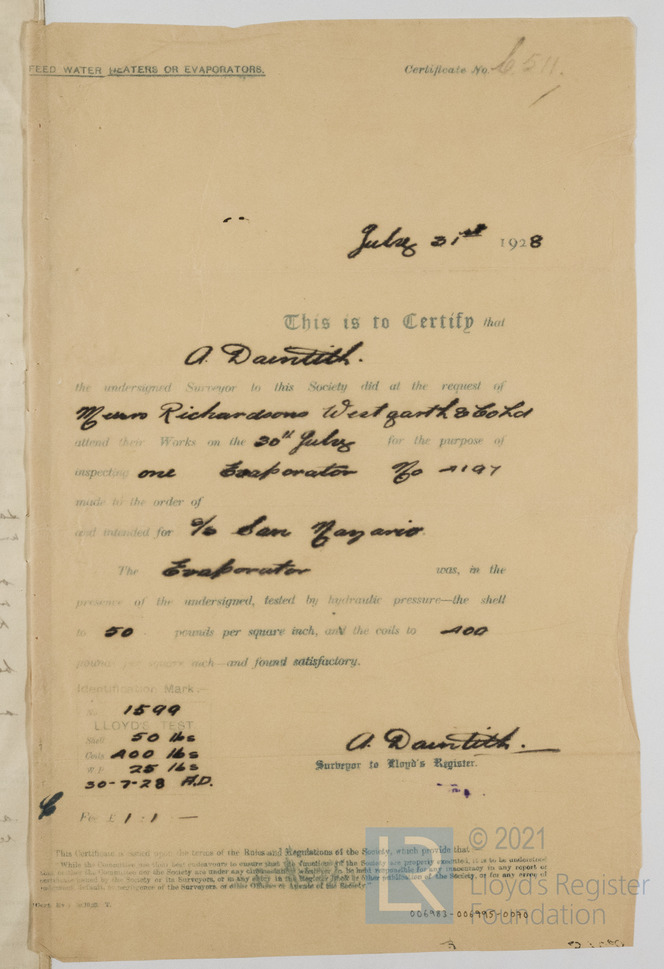 FEED WATER HEATERS OR EVAPORATORS.
Certificate No. C 511.
July 31st 1928
This is to Certify that
A. Daintith.
the undersigned Surveyor to this Society did at the request of
Messrs Richardsons Westgarth & Co Ld
attend their Works on the 30th July for the purpose of
inspecting one Evaporator No 4197
made to the order of
and intended for S/S San Nazario.
The Evaporator was, in the
presence of the undersigned, tested by hydraulic pressure—the shell
to 50 pounds per square inch, and the coils to 400
pounds per square inch—and found satisfactory.
Identification Mark:-
No. 1599
LLOYD'S TEST.
Shell 50 lbs
Coils 400 lbs
W.P. 25 lbs
30-7-28 A.D.
A. Daintith.
Surveyor to Lloyd's Register.
Fee £ 1 : 1 : —
This Certificate is issued upon the terms of the Rules and Regulations of the Society, which provide that:—
"While the Committee use their best endeavours to ensure that the functions of the Society are properly executed, it is to be understood
that neither the Committee nor the Society are under any circumstances whatever to be held responsible for any inaccuracy in any report or
certificate issued by the Society or its Surveyors, or in any entry in the Register Book or other publication of the Society, or for any error of
judgment, default, or negligence of the Surveyors, or other Officers or Agents of the Society."
LR
© 2021
Lloyd's Register
Foundation
006983-006995-0090